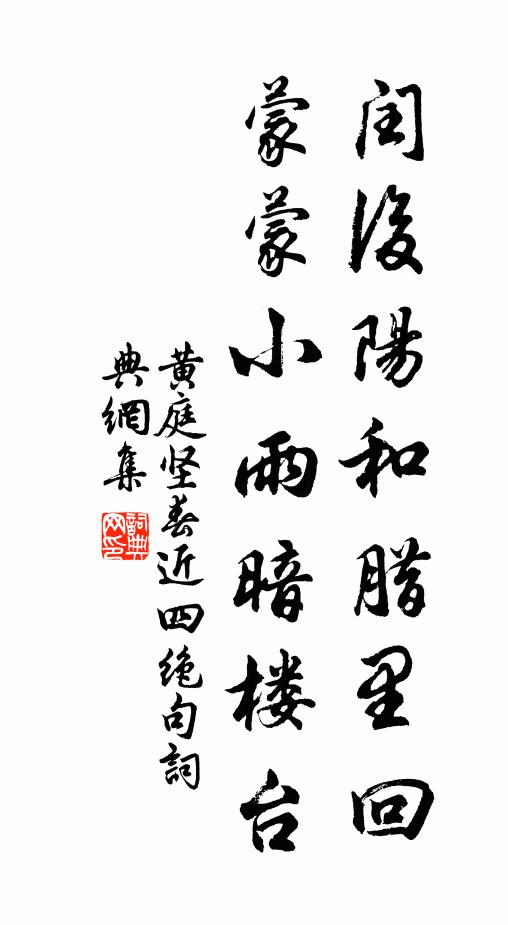 闰後陽和腊里回
蒙蒙小雨暗楼台
黄庭坚春近四绝句詞
典網集
詞典
网印